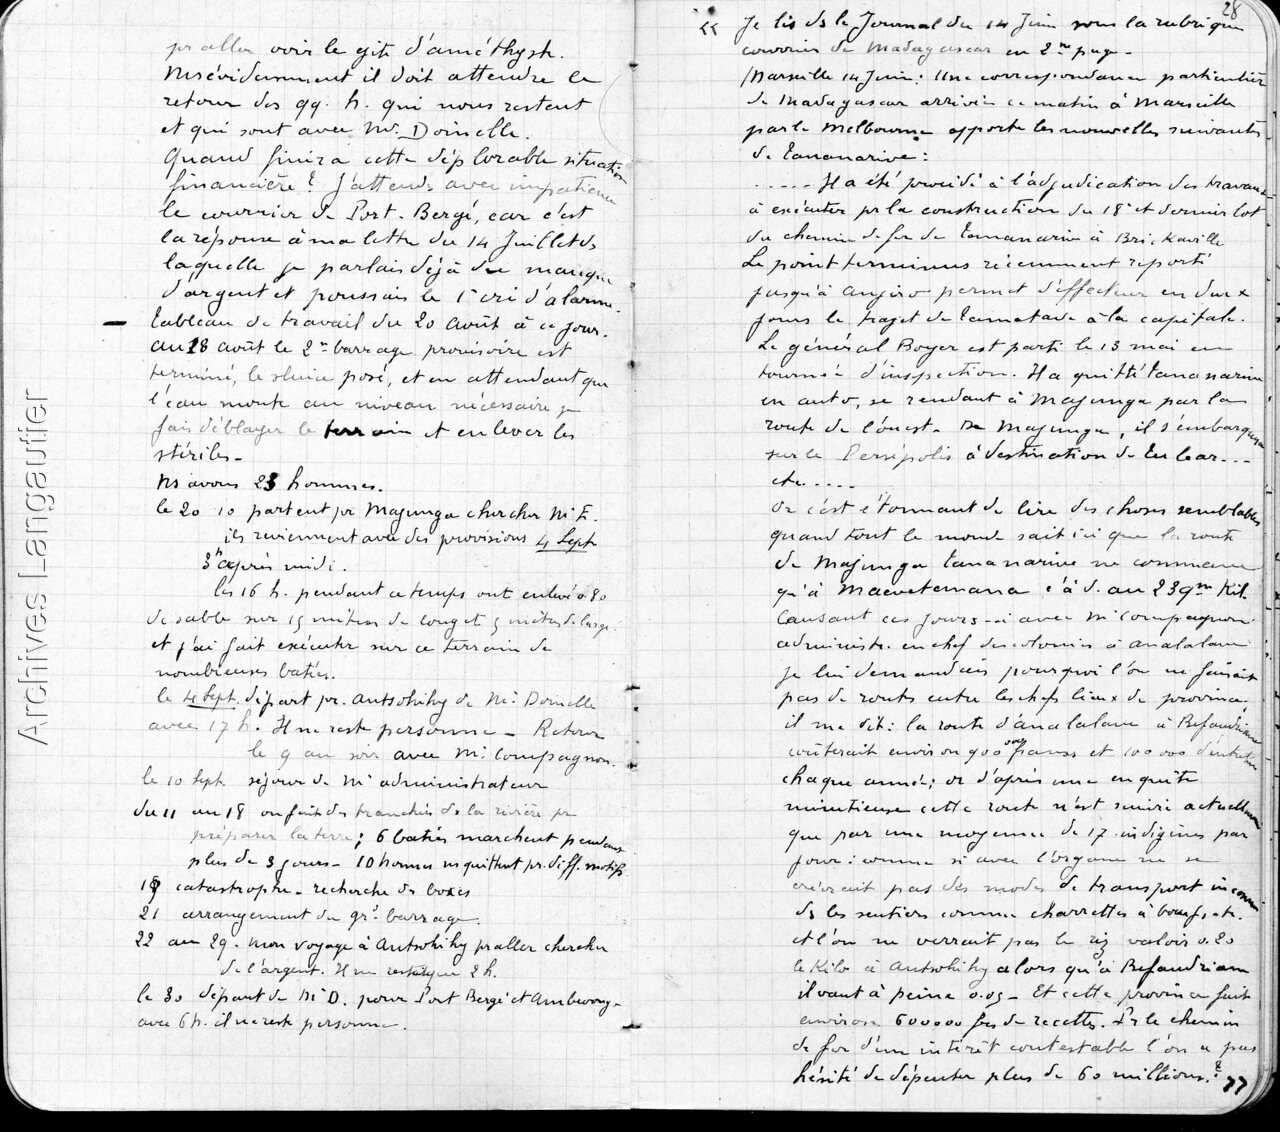 pr aller voir le gîte d'améthyste.
Mais évidemment il doit attendre le
retour des qq. h. qui nous restent
et qui sont avec Mr. Doinelle.
Quand finira cette déplorable situation
financière ? J'attends avec impatience
le courrier de Port-Bergé, car c'est
la réponse à ma lettre du 14 Juillet ds
laquelle je parlais déjà du manque
d'argent et poussais le 1er cri d'alarme.
Tableau de travail du 20 Août à ce jour.
Au 28 août le 2me barrage provisoire est
terminé, le sluice posé, et en attendant que
l'eau monte au niveau nécessaire je
fais déblayer le terrain et enlever les
stériles -
Ns avons 23 hommes.
le 20 10 partent pr Majunga chercher Mr E.
ils reviennent avec des provisions 4 Sept
3h après midi.
les 16 h. pendant ce temps ont enlevé 0.80
de sable sur 15 mètres de long et 5 mètres de large
et j'ai fait exécuter sur ce terrain de
nombreuses batées.
le 4 Sept. départ pr. Antsohihy de Mr Doinelle
avec 17 h. Il ne reste personne - Retour
le 9 au soir avec Mr Compagnon.
le 10 Sept. séjour de Mr administrateur
du 11 au 18 on fait des tranchées ds la rivière pr
préparer la terre ; 6 batées marchent pendant
plus de 3 jours - 10 hommes ns quittent pr. diff. motifs
19 catastrophe - recherche ds boxes
21 arrangement du grd barrage.
22 au 29. mon voyage à Antsohihy pr aller chercher
de l'argent. Il ne reste que 2 h.
le 30 départ de Mr D. pour Port Bergé et
avec 6 h. il ne reste personne.
28
« Je lis ds le Journal du 14 Juin sous la rubrique
courrier de Madagascar en 2me page -
Marseille 14 Juin : Une correspondance particulière
de Madagascar arrivée ce matin à Marseille
par le Melbourne apporte les nouvelles suivantes
de Tananarive :
...... Il a été procédé à l'adjudication des travaux
à exécuter pr la construction du 18e et dernier lot
du chemin de fer de Tananarive à Brickaville
Le point terminus récemment reporté
jusqu'à Anjiro permet d'effectuer en deux
jours le trajet de Tamatave à la capitale.
Le général Boyer est parti le 13 mai en
tournée d'inspection. Il a quitté Tananarive
en auto, se rendant à Majunga par la
route de l'ouest - De Majunga, il s'embarquera
sur le Persépolis à destination de Tulear...
etc.....
Or c'est étonnant de lire des choses semblables
quand tout le monde sait ici que la route
de Majunga Tananarive ne commence
qu'à Maevatanana c'à d. au 239me Kil.
Causant ces jours-ci avec Mr Compagnon
administr. en chef des colonies à Analalava
je lui demandais pourquoi l'on ne faisait
pas de routes entre les chefs lieux de province,
il me dit : la route d'Analalava à Befandriana
coûterait environ 900 000 francs et 100 000 d'entretien
chaque année ; or d'après une enquête
minutieuse cette route n'est suivie actuellement
que par une moyenne de 17 indigènes par
jour : comme si avec l'organe ne se
créerait pas des modes de transport inconnus
ds les sentiers comme charrettes à boeufs, etc.
et l'on ne verrait pas le riz valoir 0.20
le Kilo à Antsohihy alors qu'à Befandriana
il vaut à peine 0.05 - Et cette province fait
environ 600000 frs de recettes. Pr le chemin
de fer d'un intérêt contestable l'on a pas
hésité de dépenser plus de 60 millions. ?
77
Archives Langautier